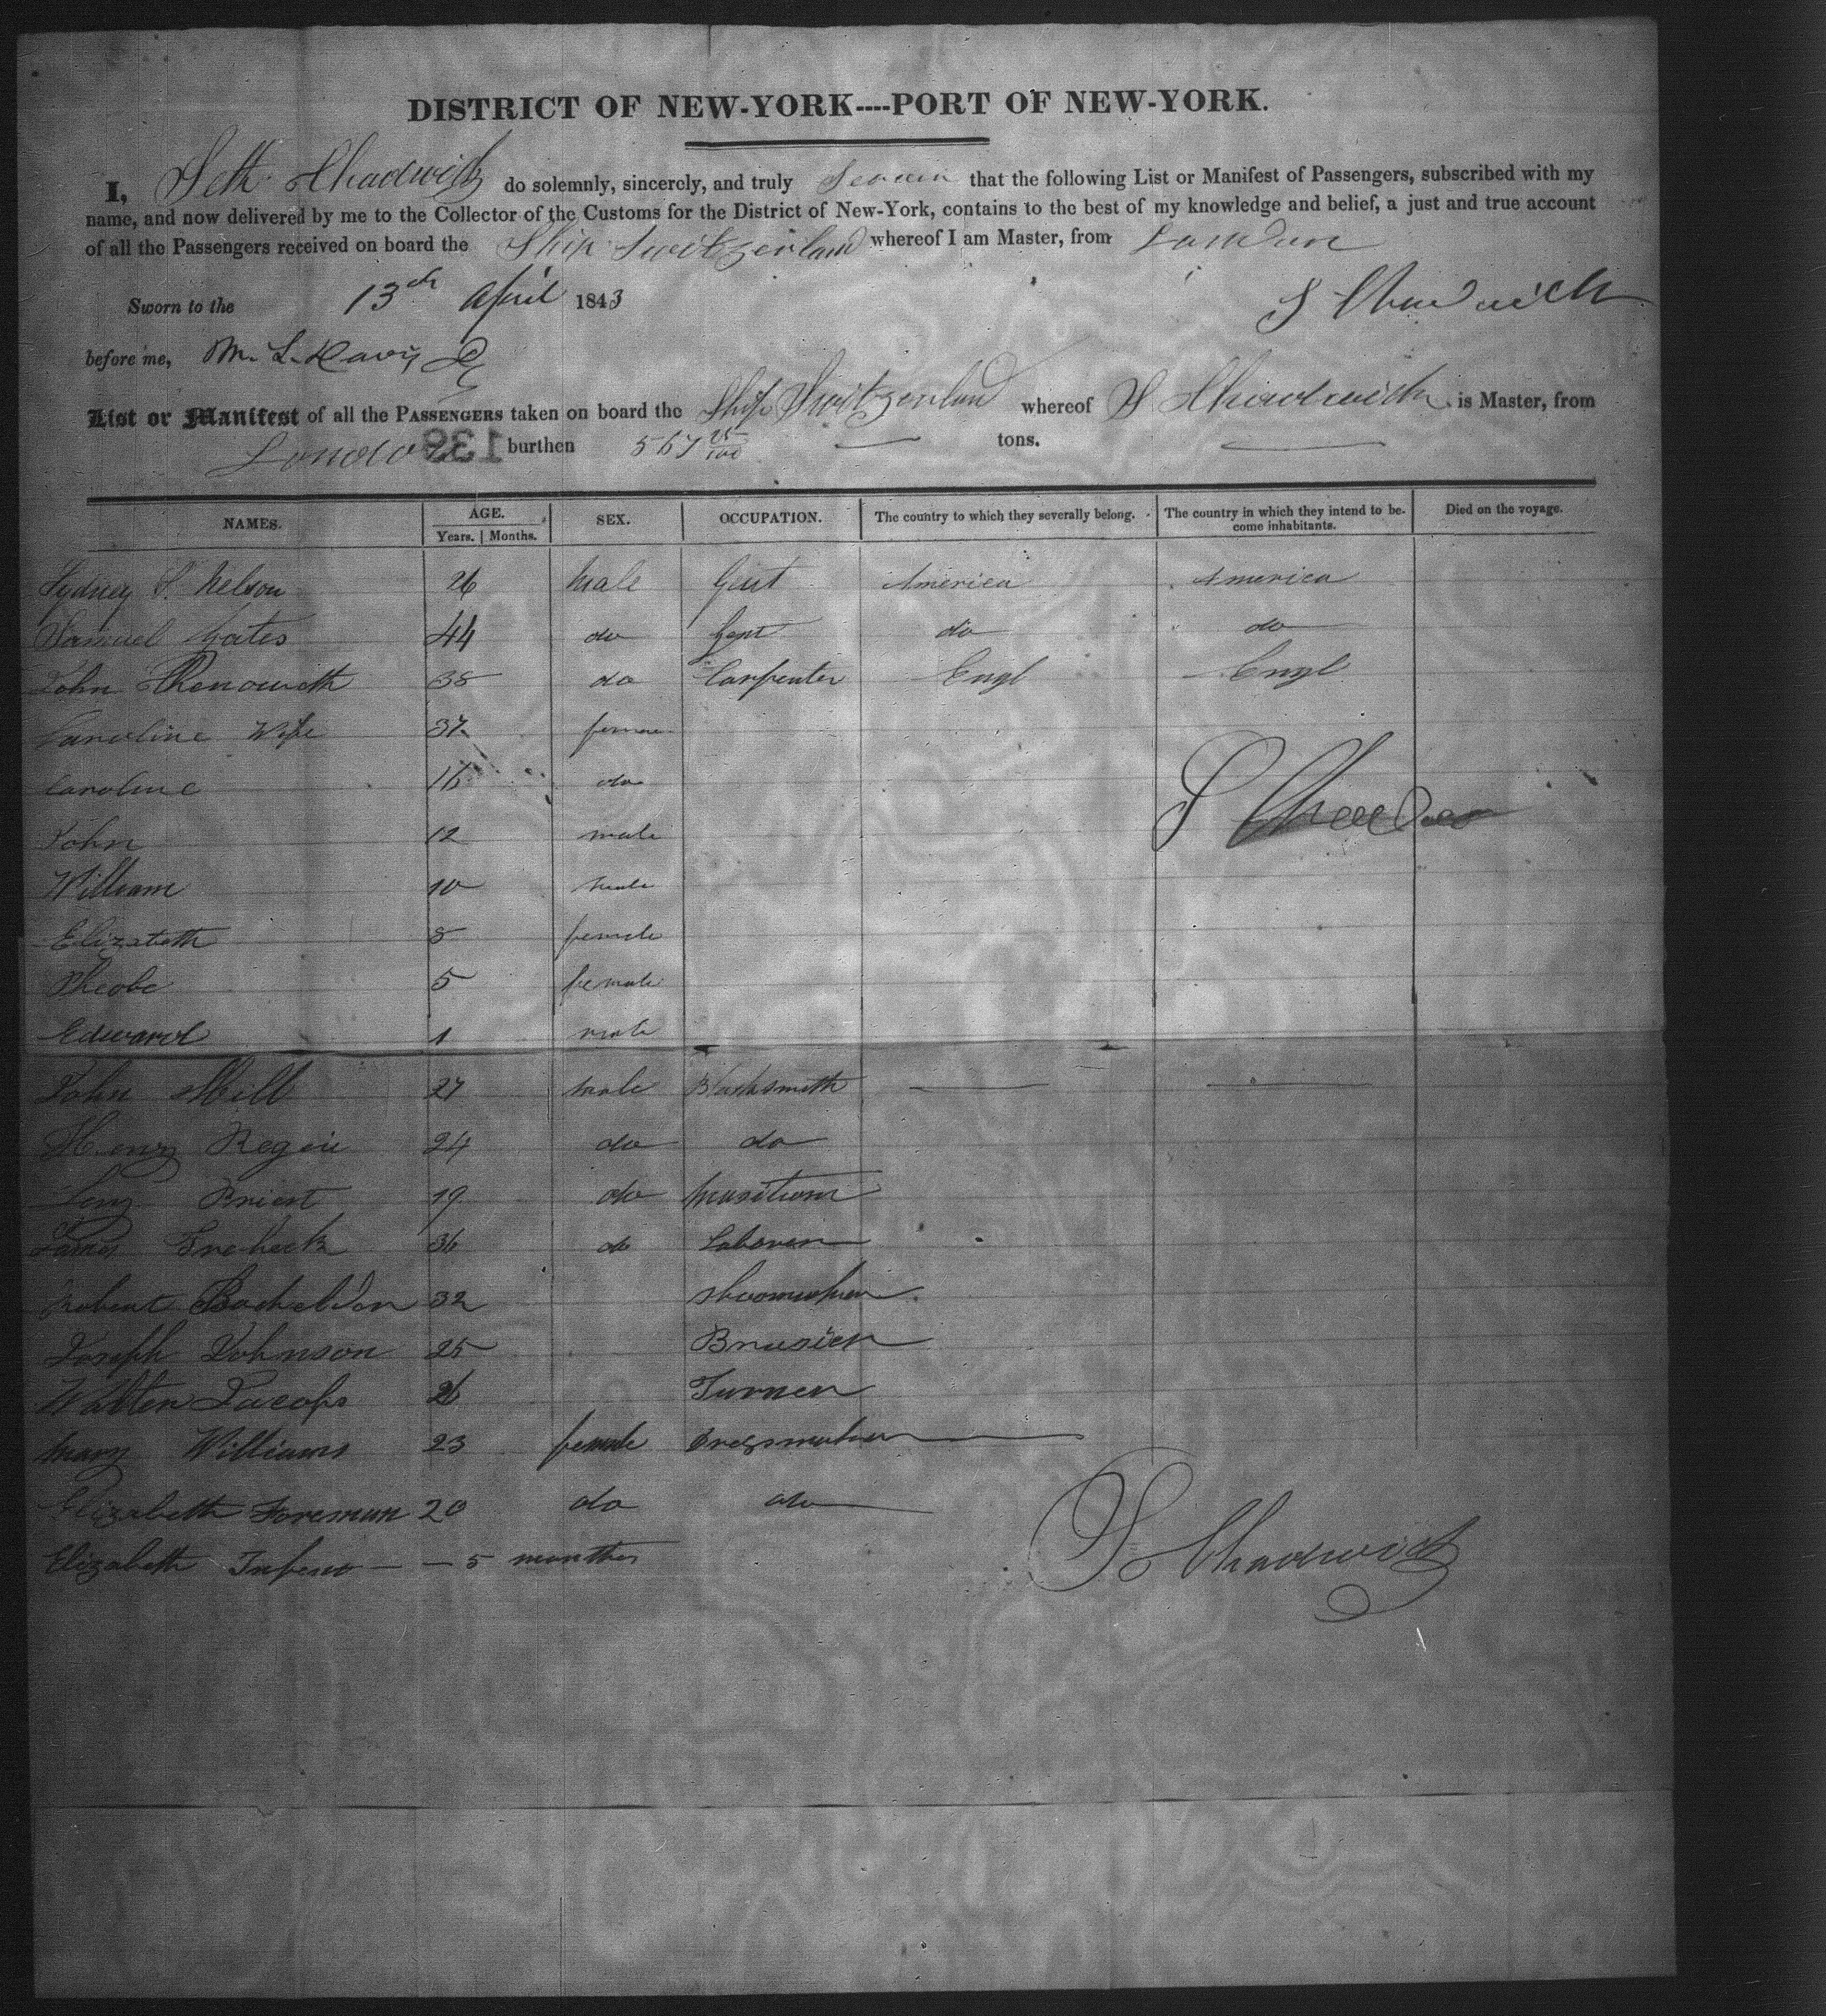 DISTRICT OF NEW-YORK----PORT OF NEW-YORK.
I, Seth Chadwick do solemnly, sincerely, and truly Swear that the following List or Manifest of Passengers, subscribed with my
name, and now delivered by me to the Collector of the Customs for the District of New-York, contains to the best of my knowledge and belief, a just and true account
of all the Passengers received on board the Ship Switzerland whereof I am Master, from London
Sworn to the 13th April 1843 S Chadwick
before me, M. L. Davis
List or Manifest of all the PASSENGERS taken on board the Ship Switzerland whereof S Chadwick is Master, from
London 139 burthen 567 25/100 tons.
NAMES. AGE. SEX. OCCUPATION. The country to which they severally belong. The country in which they intend to be- Died on the voyage.
Years. | Months. come inhabitants.
Sydney S. Nelson 26 Male Gent America America
Samuel Gates 44 do Gent do do
John Chenoweth 38 do Carpenter Engl Engl
Caroline Wife 37 female
Caroline 16 do
John 12 male
William 10 male
S Chadwick
Elizabeth 8 female
Pheobe 5 female
Edward 1 male
John Hill 27 male Blacksmith
Henry 24 do do
Priest 19 do musition
James 36 do Laborer
Robert Bacheldor 32 shoemaker
Joseph Johnson 25
Walter Jacobs 26 Turner
Mary Williams 23 female Dressmaker
Elizabeth Foreman 20 do do
Elizabeth Infant 5 months
S Chadwick